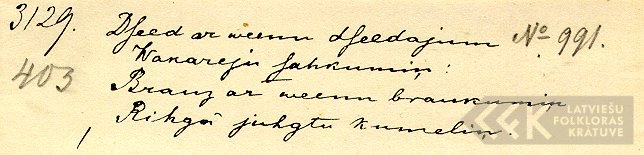 3129. Dseed ar weenu dseedajum No 991.
403 Wakareju sahkumiņ:
Brauz ar weenu braukumiņ
Rihgâ juhgtu kumeliņ.
LATVIEŠU
FOLKLORAS
KRĀTUVE